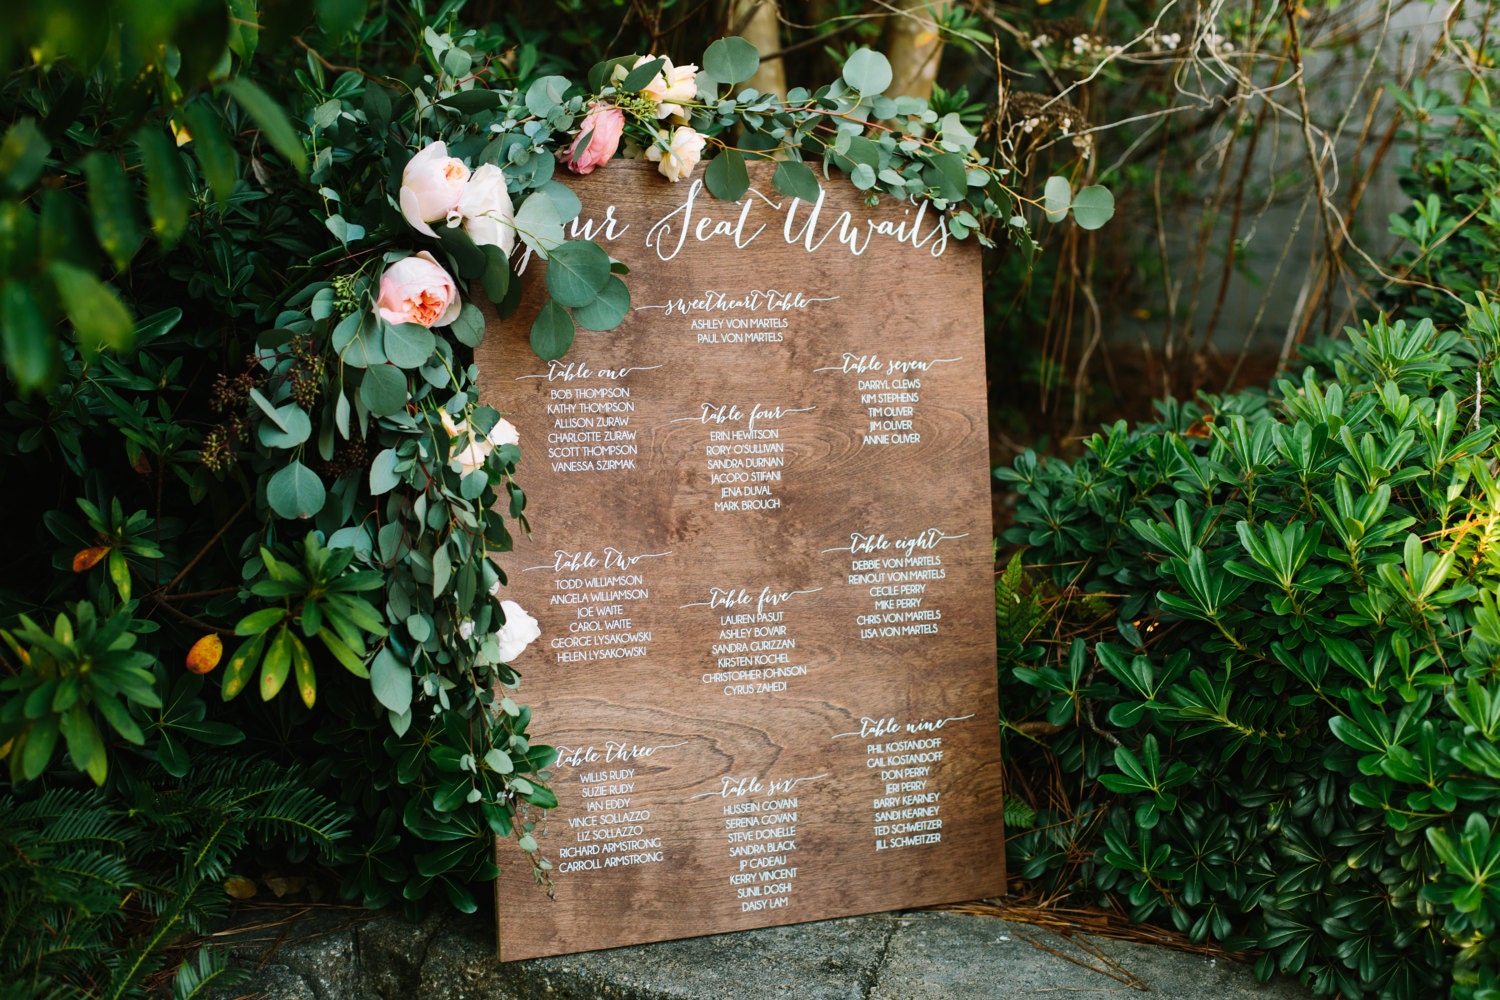 our Seat Awaits
sweetheart table
ASHLEY VON MARTELS
PAUL VON MARTELS
table one
BOB THOMPSON
KATHY THOMPSON
ALLISON ZURAW
CHARLOTTE ZURAW
SCOTT THOMPSON
VANESSA SZIRMAK
table Two
TODD WILLIAMSON
ANGELA WILLIAMSON
JOE WAITE
CAROL WAITE
GEORGE LYSAKOWSKI
HELEN LYSAKOWSKI
table three
WILLIS RUDY
SUZIE RUDY
IAN EDDY
VINCE SOLLAZZO
LIZ SOLLAZZO
RICHARD ARMSTRONG
CARROLL ARMSTRONG
table four
ERIN HEWITSON
RORY O'SULLIVAN
SANDRA DURNAN
JACOPO STIFANI
JENA DUVAL
MARK BROUGH
table five
LAUREN PASUT
ASHLEY BOVAIR
SANDRA GURIZZAN
KIRSTEN KOCHEL
CHRISTOPHER JOHNSON
CYRUS ZAHEDI
table six
HUSSEIN GOVANI
SERENA GOVANI
STEVE DONELLE
SANDRA BLACK
JP CADEAU
KERRY VINCENT
SUNIL DOSHI
DAISY LAM
table seven
DARRYL CLEWS
KIM STEPHENS
TIM OLIVER
JIM OLIVER
ANNIE OLIVER
table eight
DEBBIE VON MARTELS
REINOUT VON MARTELS
CECILE PERRY
MIKE PERRY
CHRIS VON MARTELS
LISA VON MARTELS
table nine
PHIL KOSTANDOFF
GAIL KOSTANDOFF
DON PERRY
JERI PERRY
BARRY KEARNEY
SANDI KEARNEY
TED SCHWEITZER
JILL SCHWEITZER